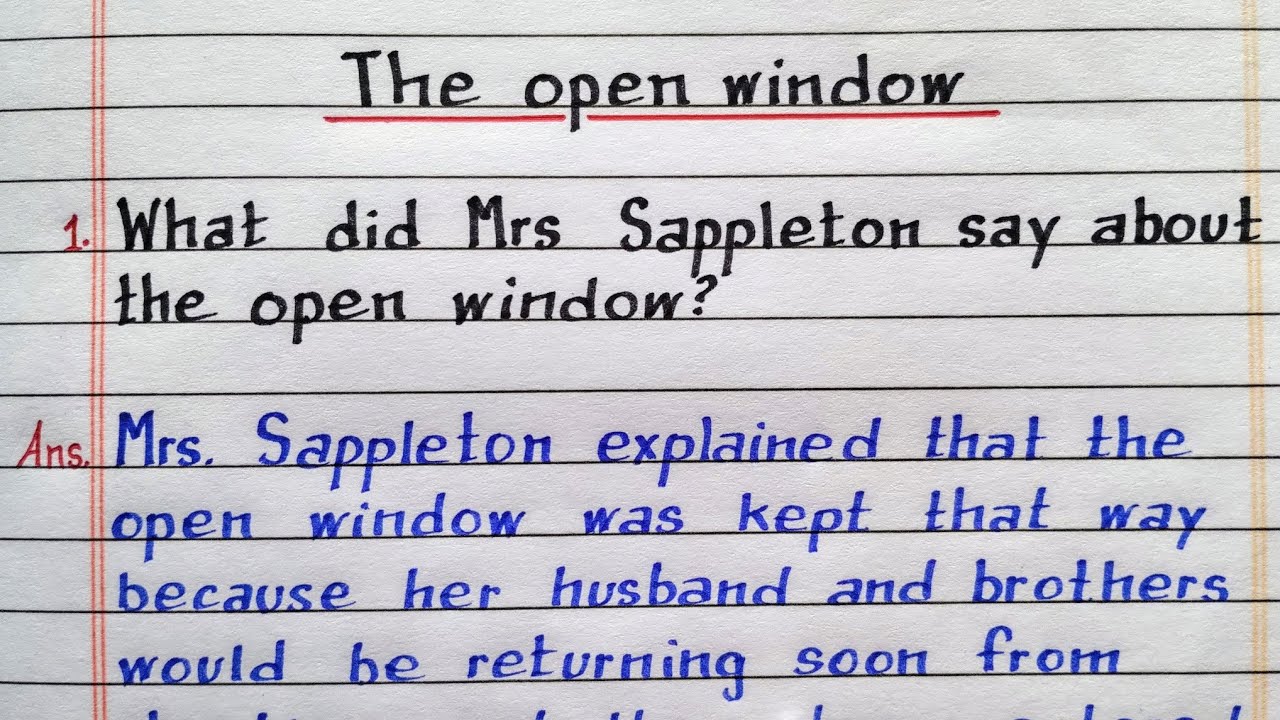 The open window
1. What did Mrs Sappleton say about
the open window?
Ans. Mrs. Sappleton explained that the
open window was kept that way
because her husband and brothers
would be returning soon from